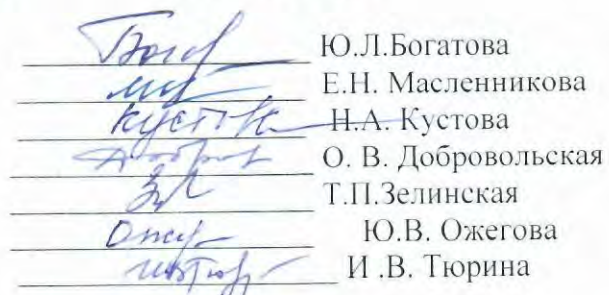 Ю.Л.Богатова
Е.Н. Масленникова
Кустова Н.А. Кустова
О. В. Добровольская
Т.П.Зелинская
Ю.В. Ожегова
И .В. Тюрина